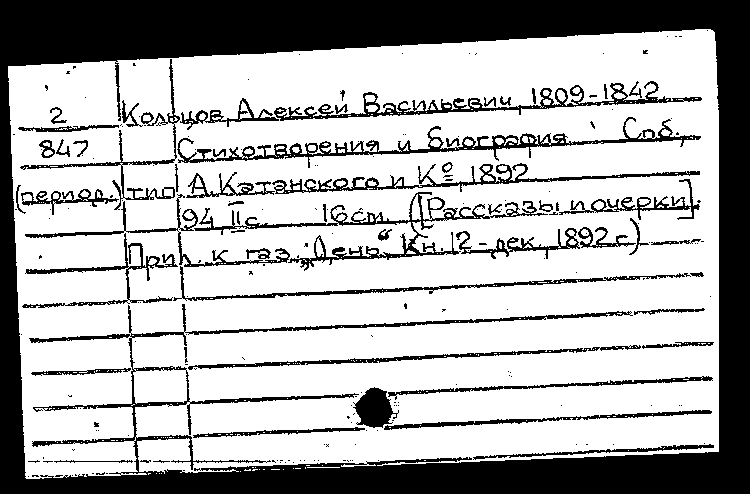 2 Кольцов, Алексей Васильевич, 1809-1842
847 Стихотворения и биография. Спб.,
(период.) тип. А. Катанского и Кº, 1892
94, II с. 16 см. ([Рассказы и очерки].
Прил. к газ. „День“ Кн. 12 - дек., 1892 г.)